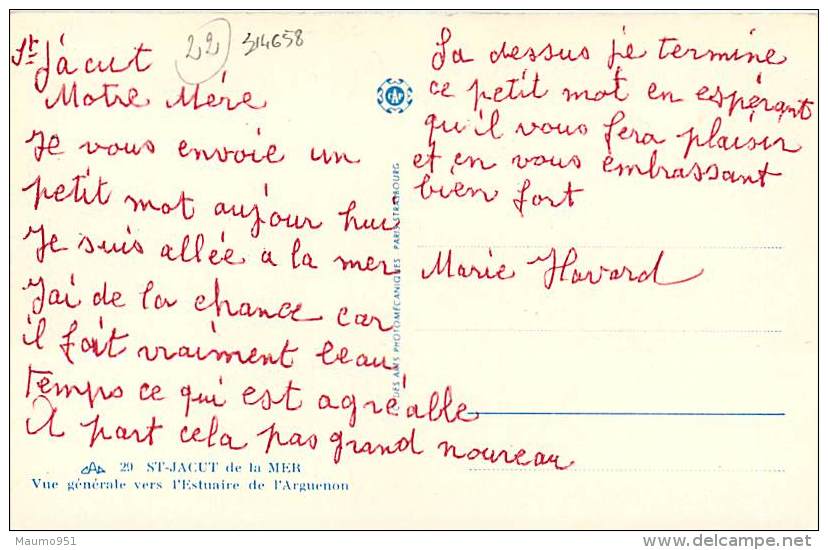 St Jacut
22
314658
Motre Mére
Je vous envoie un
petit mot aujour hui
Je suis allée a la mer
J'ai de la chance car
il fait vraiment beau
temps ce qui est agréable
A part cela pas grand nouveau
La dessus je termine
ce petit mot en espérant
qu'il vous fera plaisir
et en vous embrassant
bien fort
Marie Havard
CAP
DES ARTS PHOTOMÉCANIQUES PARIS-STRASBOURG
CAP 29 ST-JACUT de la MER
Vue générale vers l'Estuaire de l'Arguenon
Maumo951
delcampe.net